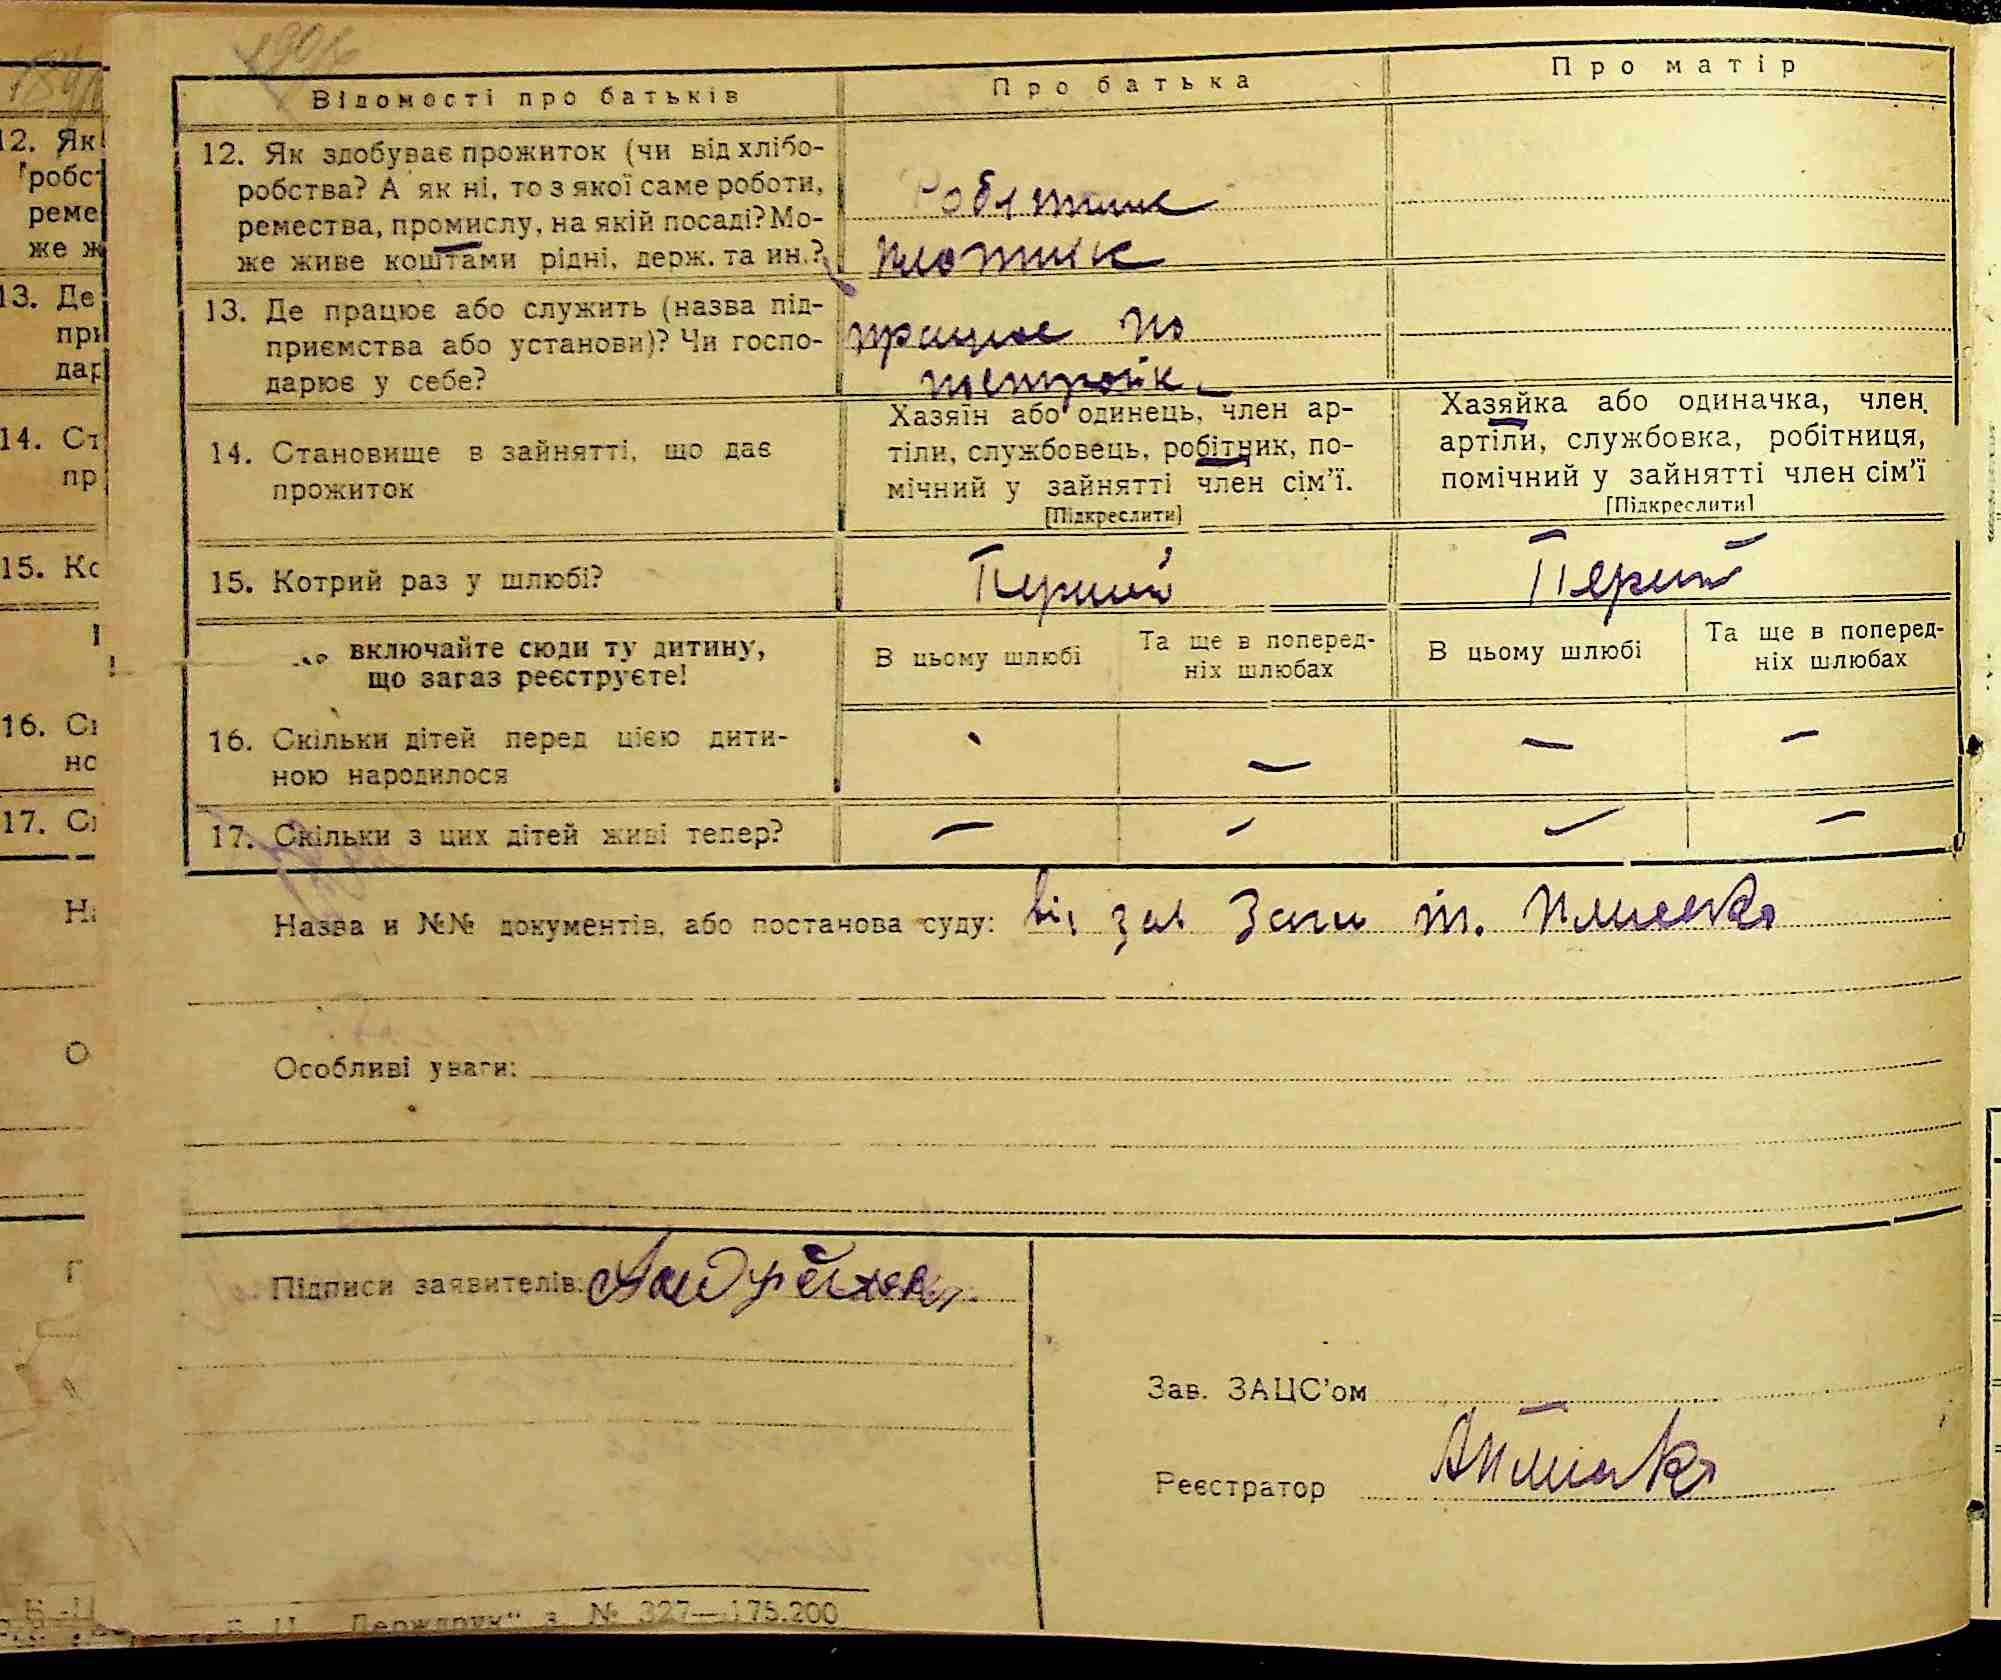 Відомості про батьків
Про батька
Про матір
12. Як здобуває прожиток (чи від хлібо-
робства? А як ні, то з якої саме роботи,
ремества, промислу, на якій посаді? Мо-
же живе коштами рідні, держ. та ин.?
Робітник
плотник
13. Де працює або служить (назва під-
приємства або установи)? Чи госпо-
дарює у себе?
працює по
14. Становище в зайнятті, що дає
прожиток
Хазяїн або одинець, член ар-
тіли, службовець, робітник, по-
мічний у зайнятті член сім'ї.
[Підкреслити]
Хазяйка або одиначка, член
артіли, службовка, робітниця,
помічний у зайнятті член сім'ї
[Підкреслити]
15. Котрий раз у шлюбі?
Перший
Перший
включайте сюди ту дитину,
що загаз реєструєте!
В цьому шлюбі
Та ще в поперед-
ніх шлюбах
В цьому шлюбі
Та ще в поперед-
ніх шлюбах
16. Скільки дітей перед цією дити-
ною народилося
— — —
17. Скільки з цих дітей живі тепер?
— — — —
Назва и №№ документів, або постанова суду: від зав
Особливі уваги:
Підписи заявителів:
Зав. ЗАЦС'ом
Реєстратор
"Держдрук" з. № 327—175.200
12. Як
робс
реме
же ж
13. Де
при
дар
14. Ст
пр
15. Ко
16. Сі
но
17. Сі